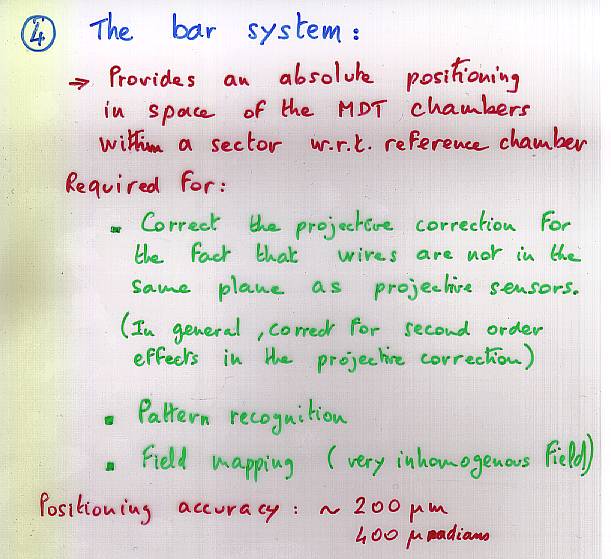 ④ The bar system:
⇒ Provides an absolute positioning
in space of the MDT chambers
within a sector w.r.t. reference chamber
Required for:
▪ Correct the projective correction for
the fact that wires are not in the
same plane as projective sensors.
(In general, correct for second order
effects in the projective correction)
▪ Pattern recognition
▪ Field mapping (very inhomogenous field)
Positioning accuracy: ~ 200 μm
400 μradians